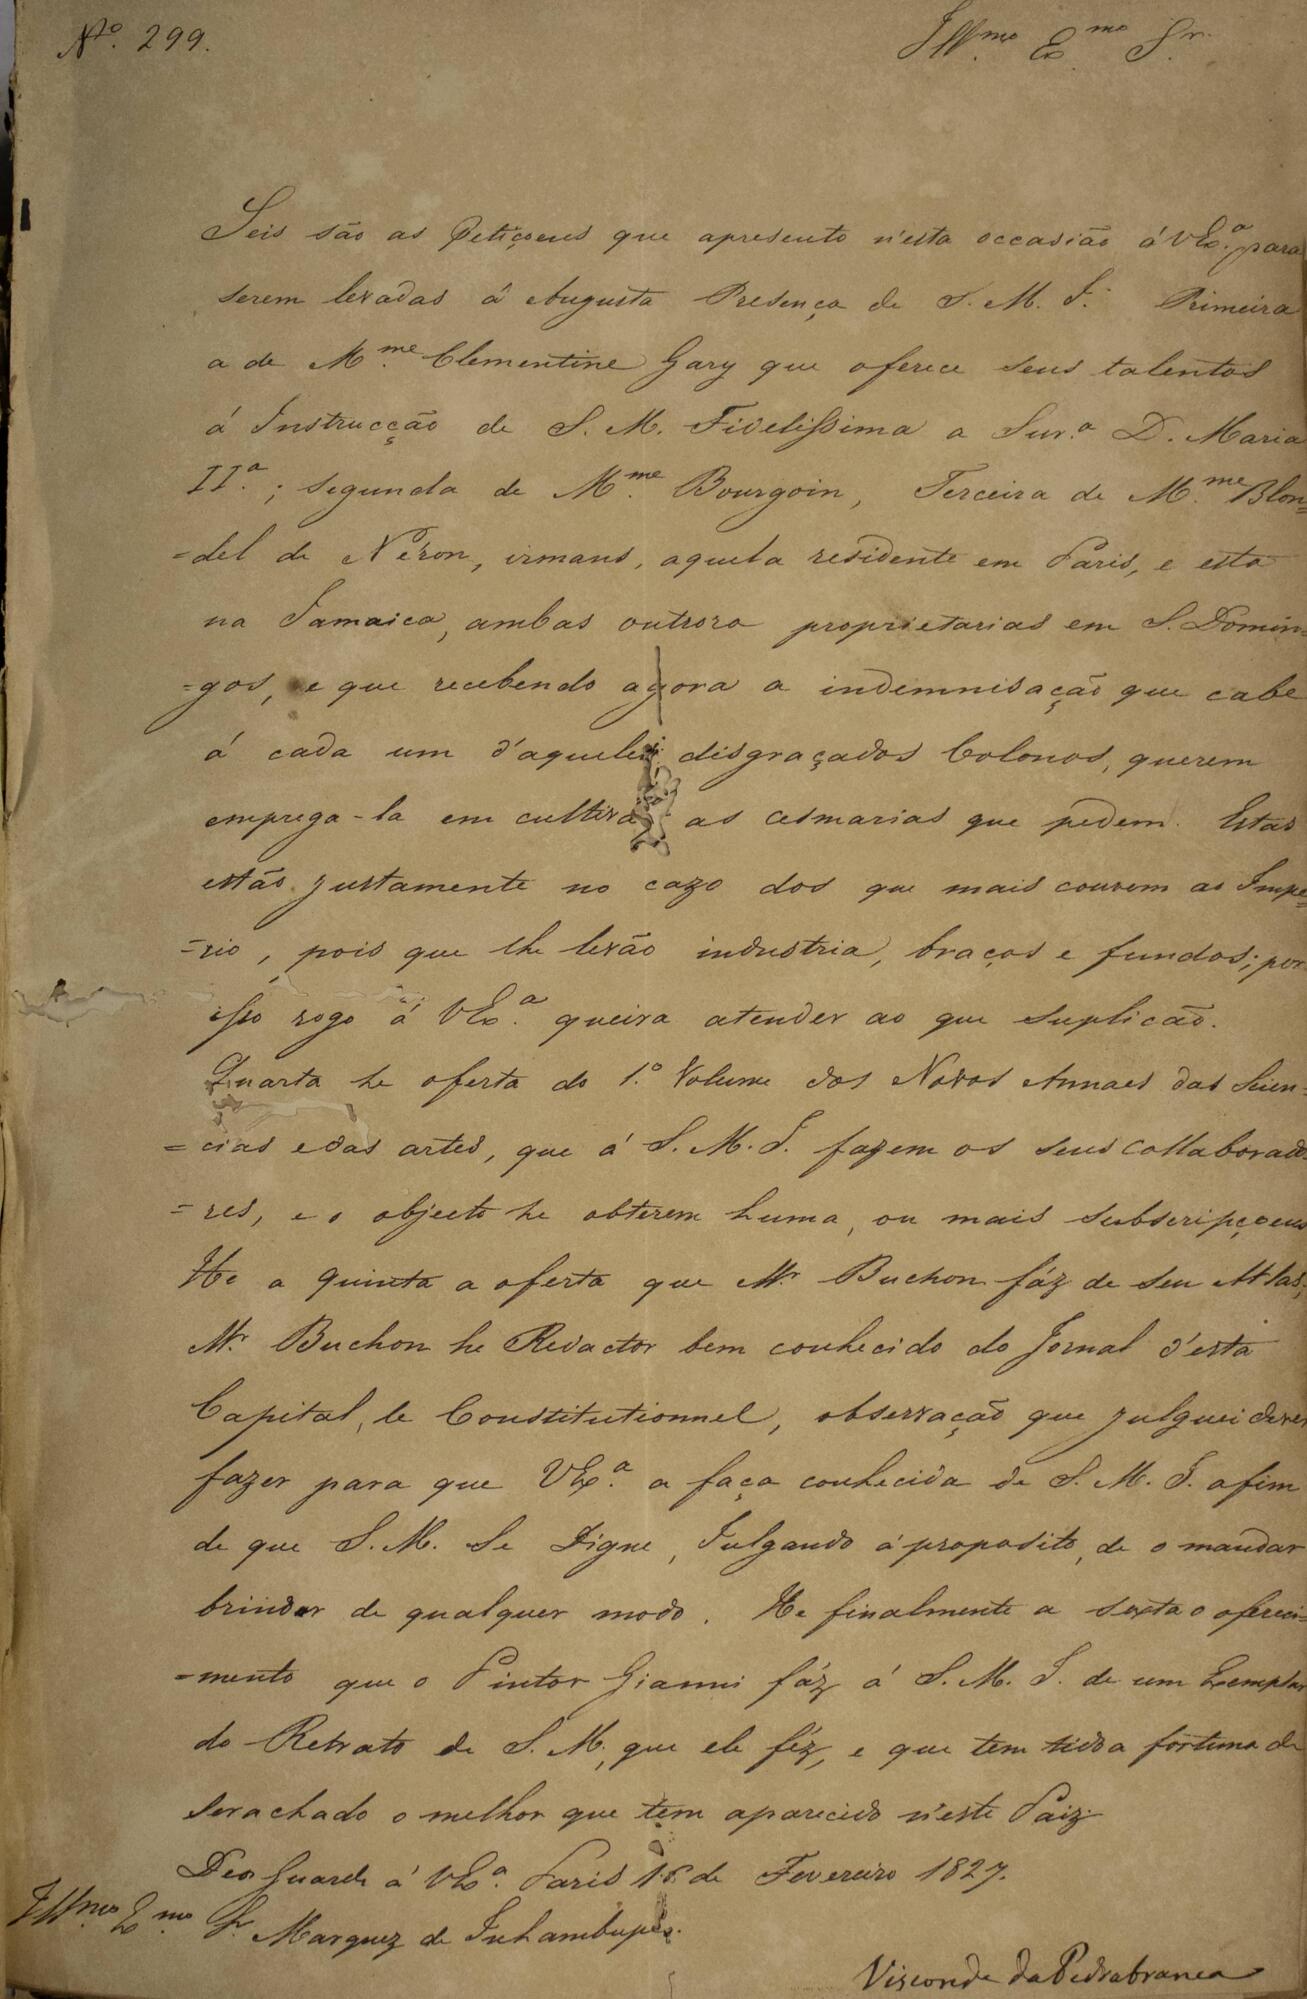 Nº. 299.
Illmo. Exmo. Sr.
Seis são as Petiçoens que apresento n'esta occasião á VExª. para
serem levadas á Augusta Presença de S. M. I. Primeira
a de Mme. Clementine Gary que oferece seus talentos
á Instrucção de S. M. Fidelissima a Snrª D. Maria
IIª.; segunda de Mme. Bourgoin, Terceira de Mme. Blon=
=del de Néron, irmans, aquela residente em Paris, e esta
na Jamaica, ambas outrora proprietarias em S. Domin=
=gos, e que recebendo agora a indemnisação que cabe
á cada um d'aqueles disgraçados Colonos, querem
emprega-la em cultivar as cesmarias que pedem. Estas
estão justamente no cazo dos que mais convem ao Impe=
=rio, pois que lhe levão industria, braços e fundos; por
isso rogo á VExª. queira atender ao que suplicão.
Quarta he oferta do 1.º Volume dos Novos Annaes das Scien=
=cias e das artes, que á S. M. I. fazem os seus collaborado=
=res, e o objecto he obterem huma, ou mais subscripçoens
He a quinta a oferta que Mr. Buchon fáz de seu Atlas;
Mr. Buchon he Redactor bem conhecido do Jornal d'esta
Capital, le Constitutionnel, observação que julguei dever
fazer para que VExª. a faça conhecida de S. M. I. afim
de que S. M. Se Digne, Julgando á proposito, de o mandar
brindar de qualquer modo. He finalmente a sexta o ofereci=
=mento que o Pintor Gianni fáz á S. M. I. de um Exemplar
do Retrato de S. M., que ele féz, e que tem tido a fortuna de
ser achado o melhor que tem aparecido n'este Paiz.
Deos Guarde á VExª. Paris 16 de Fevereiro 1827.
Illmo. Exmo. Sr. Marquez de Inhambupe.
Visconde da Pedrabranca